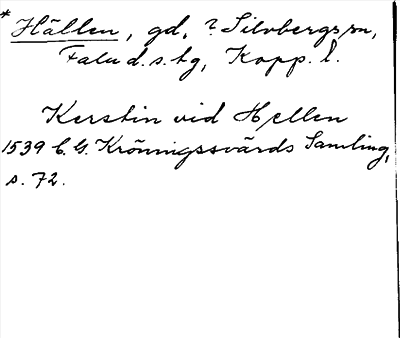 * Hällen, gd, ? Silvbergs sn,
Falu d.s. tg, Kopp. l.
Kerstin vid Hellen
1539 C. G. Kröningssvärds Samling,
s. 72.